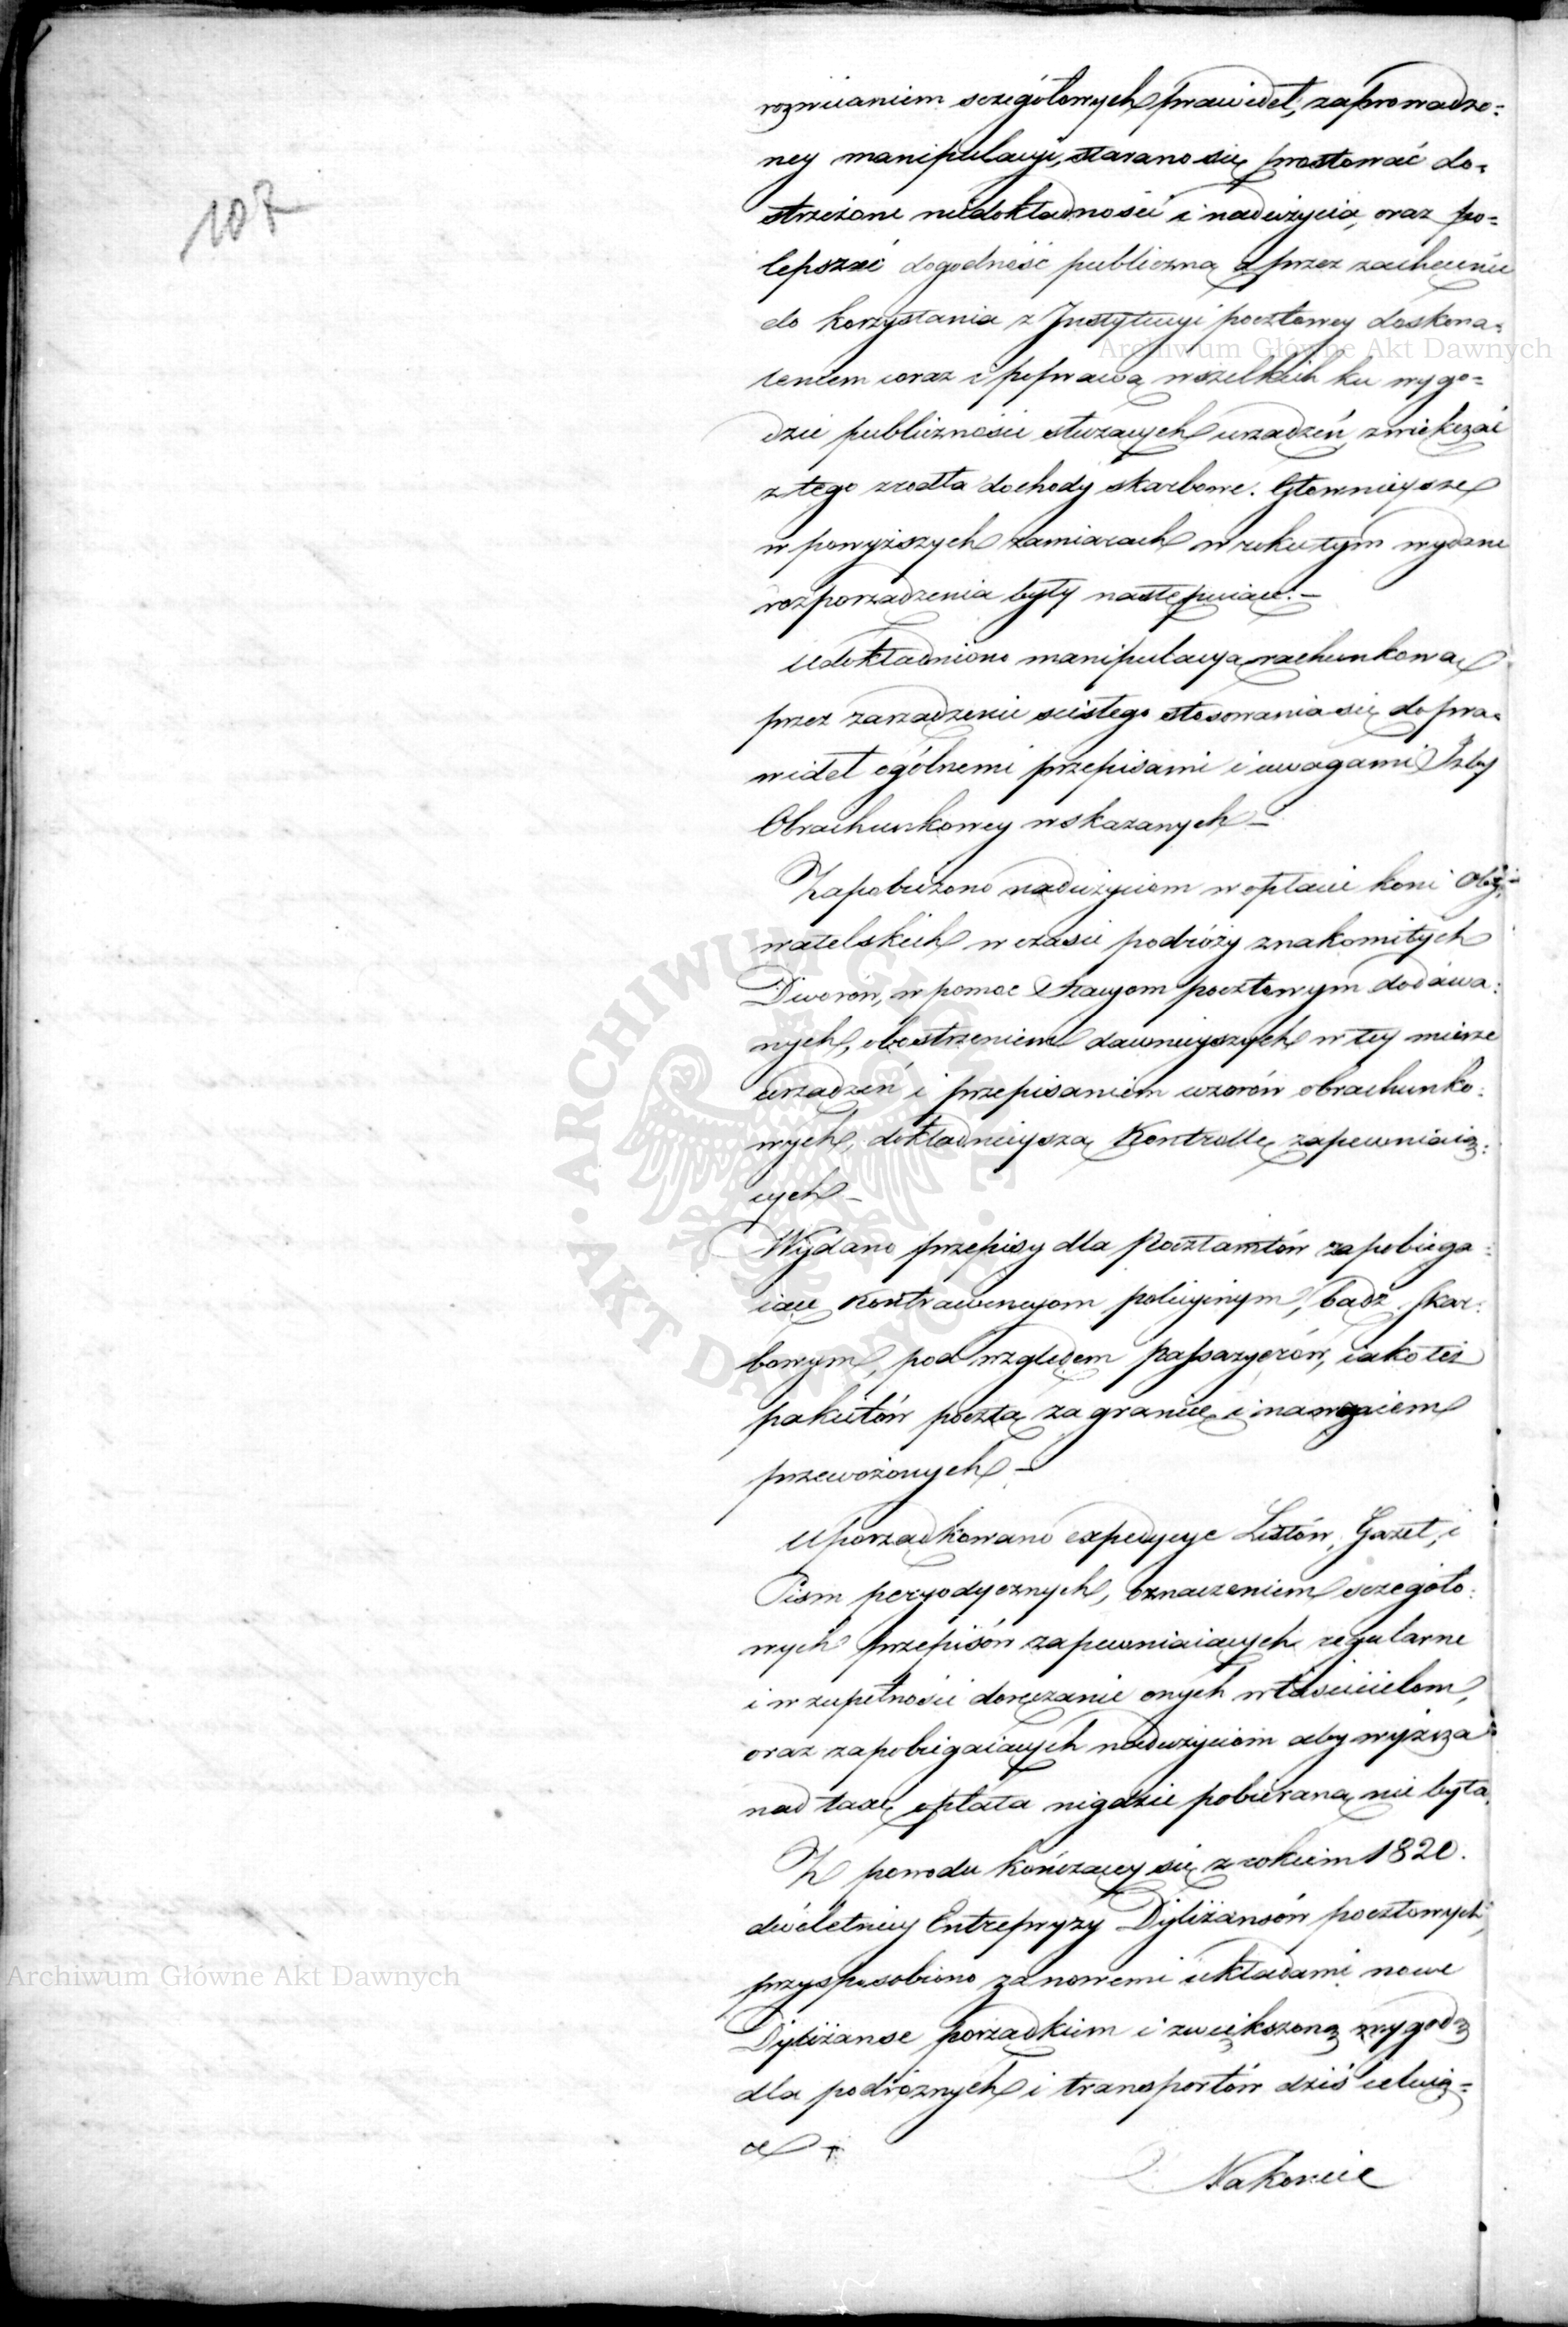 107
rozwiianiem sczegółowych prawideł, zaprowadzo=
ney manipulacyi, starano się prostować do=
strzeżone niedokładności i nadużycia, oraz po=
lepszać dogodność publiczną a przez zachęcenie
do korzystania z Instytucyi pocztowey doskona=
leniem coraz i poprawą wszelkich ku wygo=
dzie publiczności służących urządzeń, zwiększać
z tego zrodła dochody skarbowe. Głownieysze
w powyższych zamiarach w roku tym wydane
rozporządzenia były następuiące. –
Udokładniono manipulacyą rachunkową
przez zarządzenie scisłego stosowania się do pra=
wideł ogólnemi przepisami i uwagami Izby
Obrachunkowey wskazanych –
Zapobieżono nadużyciom w opłacie koni Oby=
watelskich w czasie podróży znakomitych
Dworów, w pomoc Stacyom pocztowym dodawa=
nych, obostrzeniem dawnieyszych w tey mierze
urządzeń i przepisaniem wzorów obrachunko=
wych, dokładnieyszą Kontrollę zapewniaią=
cych –
Wydano przepisy dla Pocztamtów zapobiega=
iące Kontrawencyom policyinym, bądź skar=
bowym, pod względem Passazyerów, iako też
pakietów pocztą za granicę i nawzaiem
przewożonych –
Uporządkowano expedycye Listów, Gazet, i
Pism peryodycznych, oznaczeniem sczegóło=
wych przepisów zapewniaiących regularne
i w zupełności doręczanie onych właścicielom,
oraz zapobiegaiących nadużyciom aby wyższa
nad taxę opłata nigdzie pobieraną nie była.
Z powodu kończącey się z rokiem 1820.
dwóletniey Entrepryzy Dyliżansów pocztowych,
przysposobiono za nowemi układami nowe
Dyliżanse porządkiem i zwiększoną wygodą
dla podróżnych i transportów dziś celuią=
ce –
Nakoniec
Archiwum Główne Akt Dawnych
Archiwum Główne Akt Dawnych
ARCHIWUM GŁÓWNE · AKT DAWNYCH ·